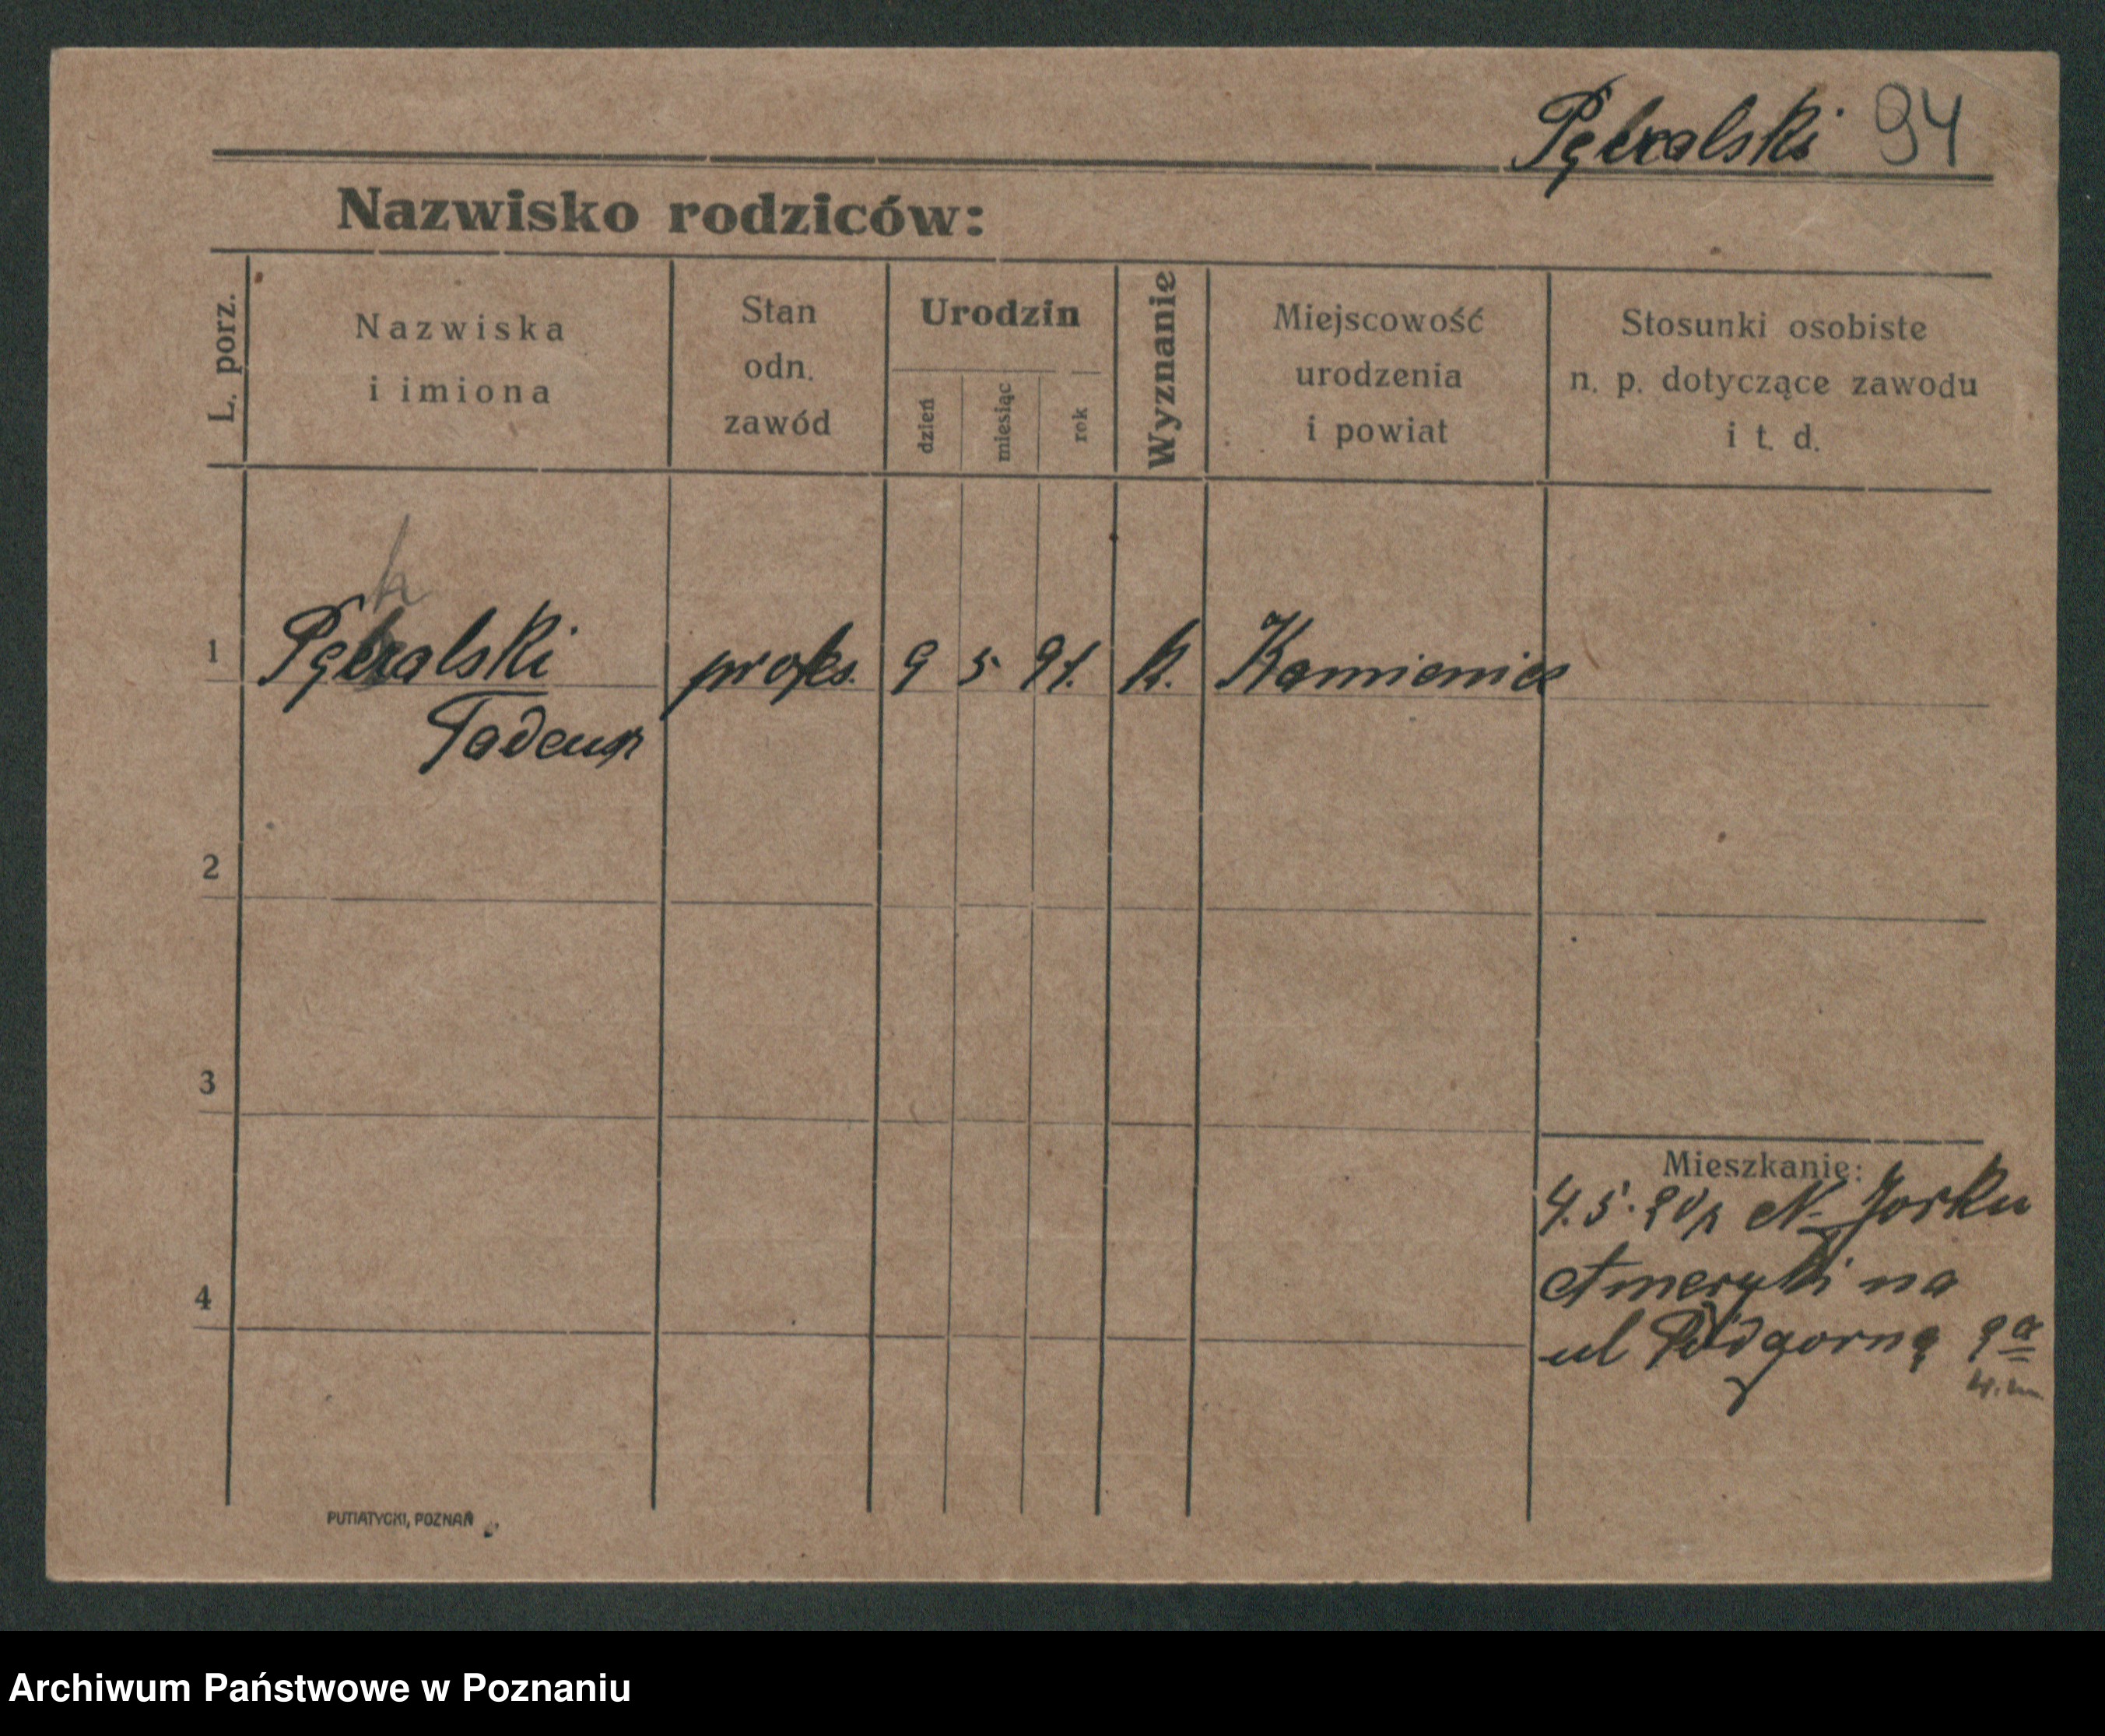 Pękalski 94
Nazwisko rodziców:
L. porz.
Nazwiska
i imiona
Stan
odn.
zawód
Urodzin
dzień
miesiąc
rok
Wyznanie
Miejscowość
urodzenia
i powiat
Stosunki osobiste
n. p. dotyczące zawodu
i t. d.
k
1 Pękalski 9 5 91. k. Kamieniec
Tadeusz
2
3
4
Mieszkanie:
4. 5. 20 z N-Jorku
Ameryki na
ul Podgorną 9a
PUTIATYCKI, POZNAŃ
Archiwum Państwowe w Poznaniu